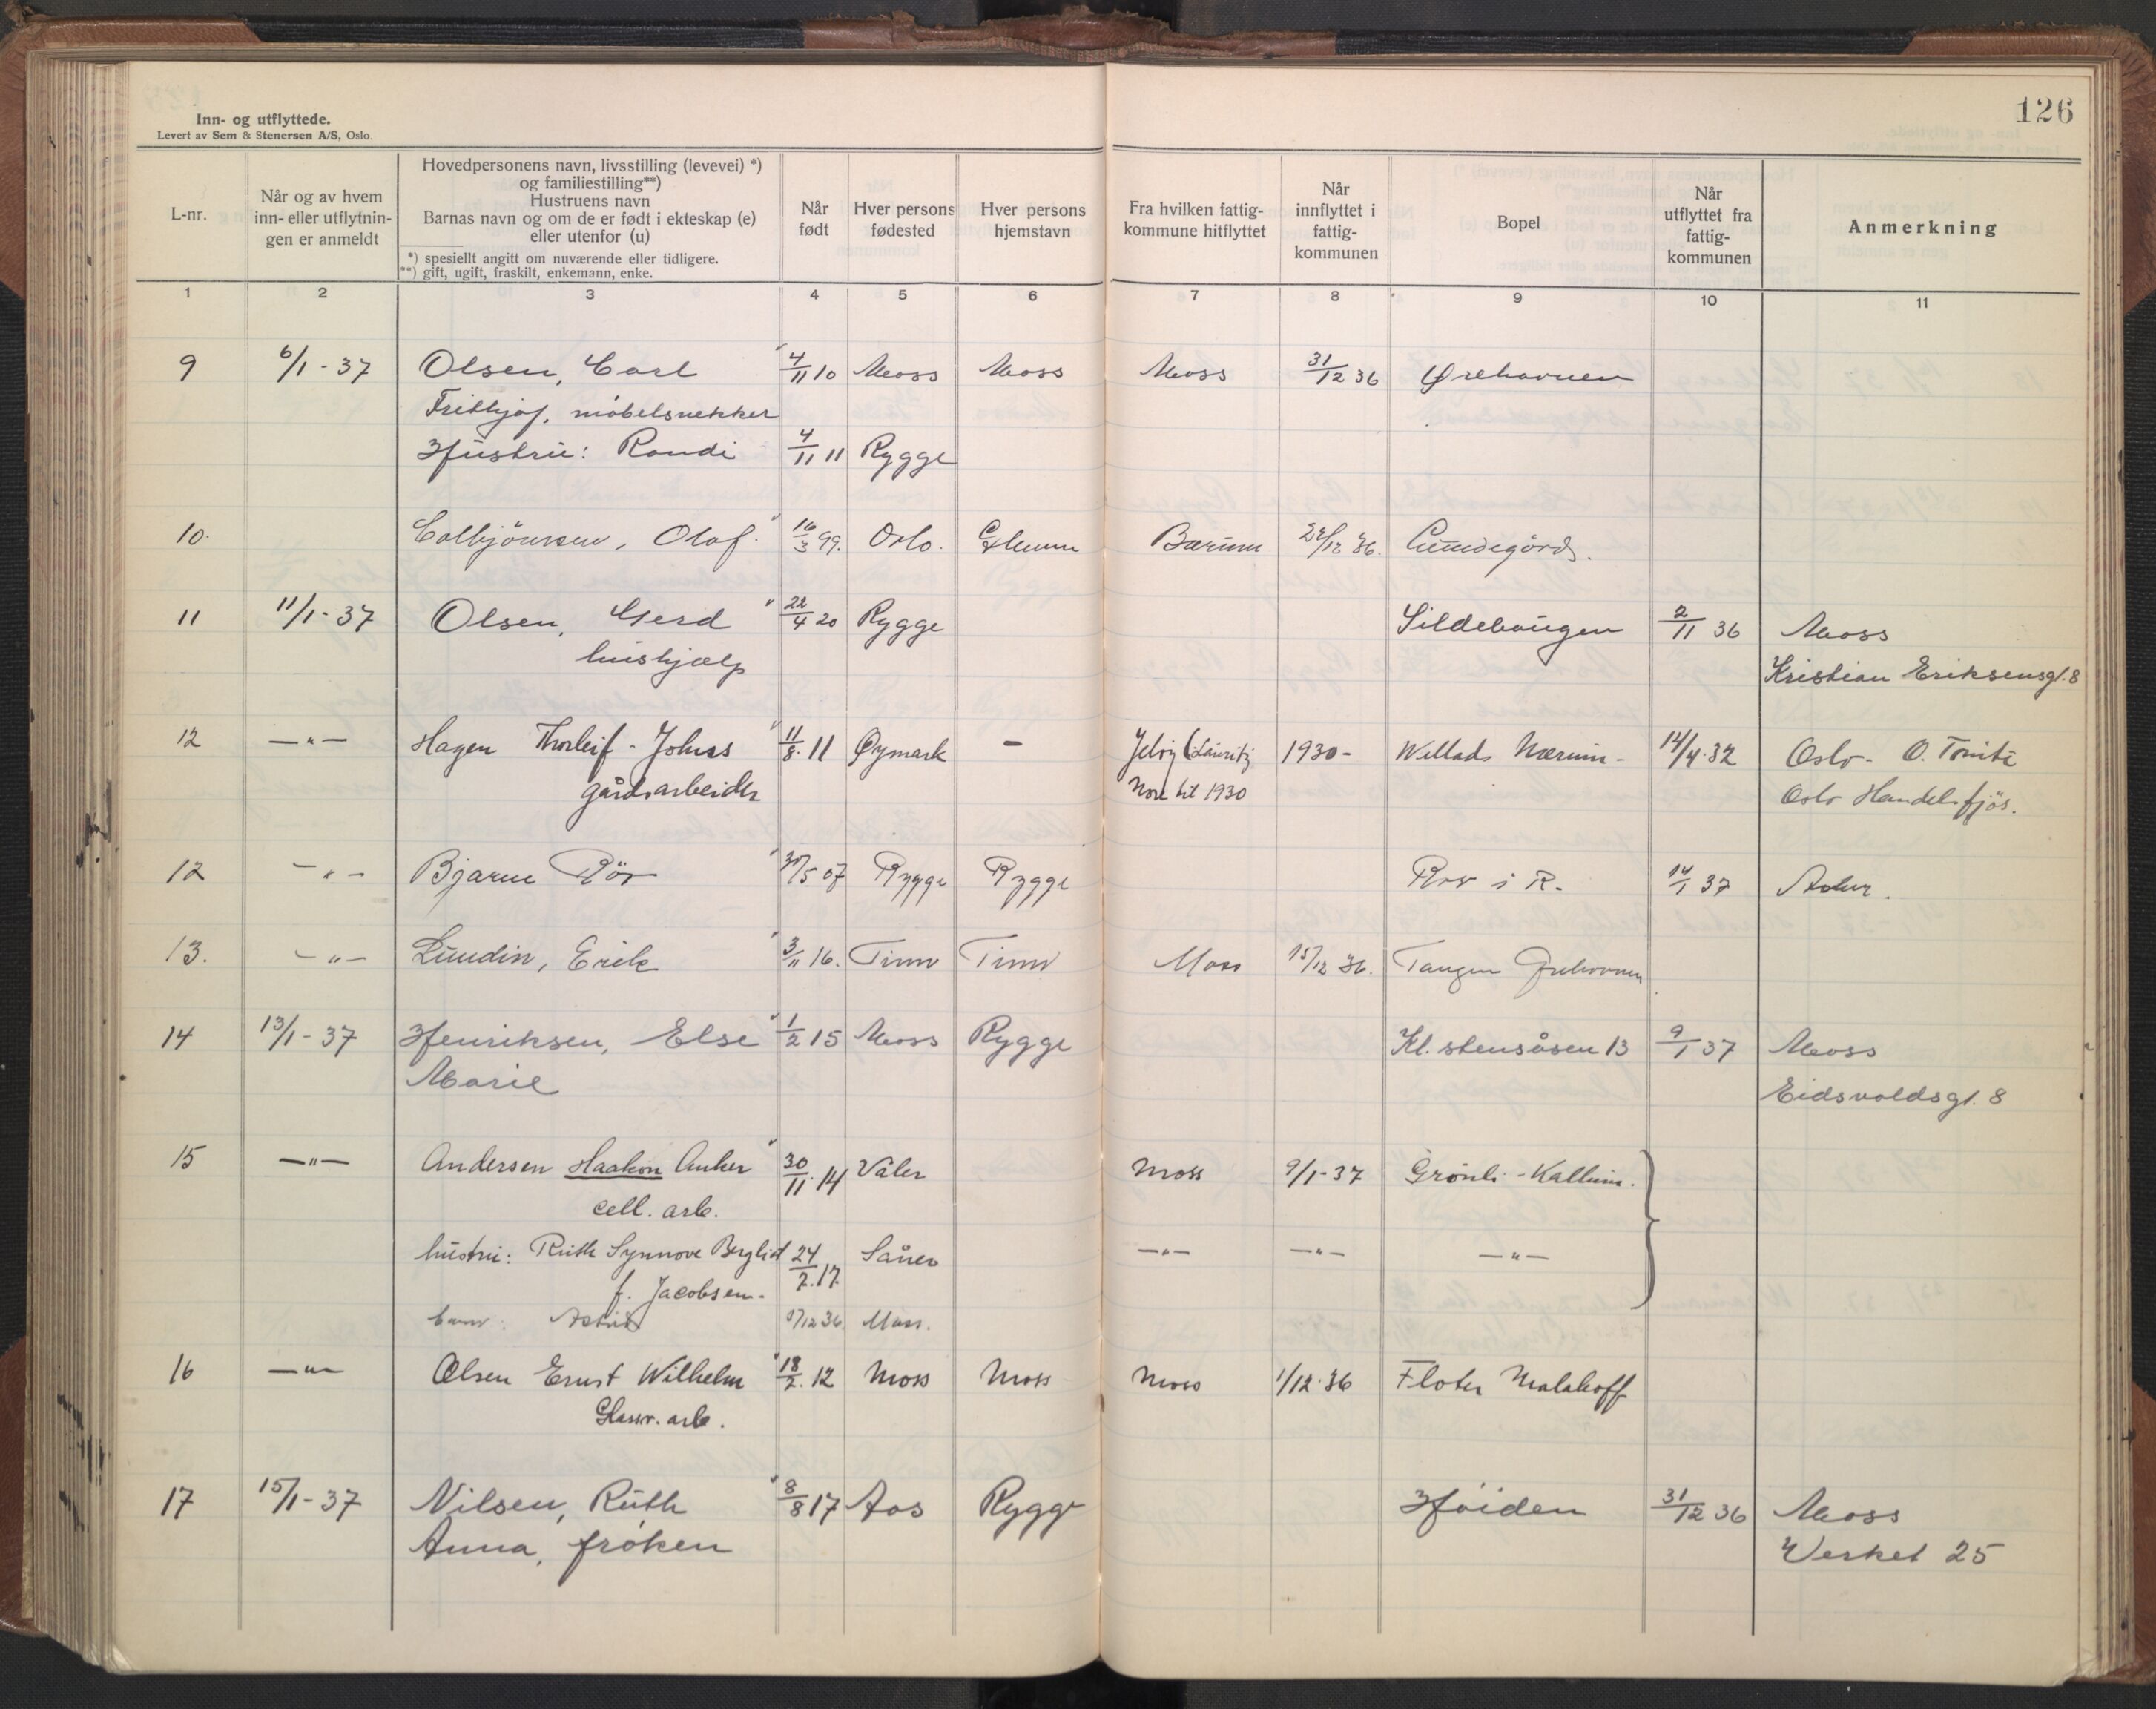 126
Inn- og utflyttede.
Levert av Sem & Stenersen A/S, Oslo.
L-nr.
Når og av hvem
inn- eller utflytnin-
gen er anmeldt
Hovedpersonens navn, livsstilling (levevei) *)
og familiestilling**)
Hustruens navn
Barnas navn og om de er født i ekteskap (e)
eller utenfor (u)
*) spesiellt angitt om nuværende eller tidligere.
**) gift, ugift, fraskilt, enkemann, enke.
Når
født
Hver persons
fødested
Hver persons
hjemstavn
Fra hvilken fattig-
kommune hitflyttet
Når
innflyttet i
fattig-
kommunen
Bopel
Når
utflyttet fra
fattig-
kommunen
Anmerkning
1 2 3 4 5 6 7 8 9 10 11
9 6/1-37 Olsen, Carl 4/11 10 Moss Moss Moss 31/12 36 Ørehavnen
Frithjof, møbelsnekker
Hustru: Randi 4/11 11 Rygge
10. Colbjörnsen, Olaf. 16/3 99. Oslo. Bærum 36.
11 11/1-37 Olsen, Gerd 22/4 20 Rygge Sildebaugen 2/11 36 Moss
hushjælp Kristian Eriksensgt. 8
12 —"— Hagen Thorleif - Johns 11/8.11 Øymark - Jeløy (Lauritz 1930- Nærum- 14/4.32 Oslo- O.
gårdsarbeider Nore til 1930 Oslo Handels fjös.
12 -"- Bjarne Rör 07 Rygge Rygge Rör i R. 14/1 37
13. -"- Lundin, Erik 3/11 16. Tinn Tinn Moss 15/12 36. Tangen Ørehavnen
14 13/1-37 Henriksen, Else 1/2 15 Moss Rygge Kl. stensåsen 13 9/1 37 Moss
Marie Eidsvoldsgt. 8
15 —"— Andersen Haakon Anker 30/11.14 Våler Moss 9/1-37 Grönli - Kallum.
cell. arb.
hustru: Ruth Synnøve Bergliot 24/7.17. Såner —"— —"— —"—
f. Jacobsen.
barn: Astrid 12 36. Moss.
16 —"— Olsen Ernst Wilhelm 18/7.12 Moss Moss Moss 1/12.36 Floter Malakoff
Glassv. arb.
17 15/1-37 Nilsen, Ruth 8/8 17 Aas Rygge Höiden 31/12 36 Moss
Anna, frøken Verket 25